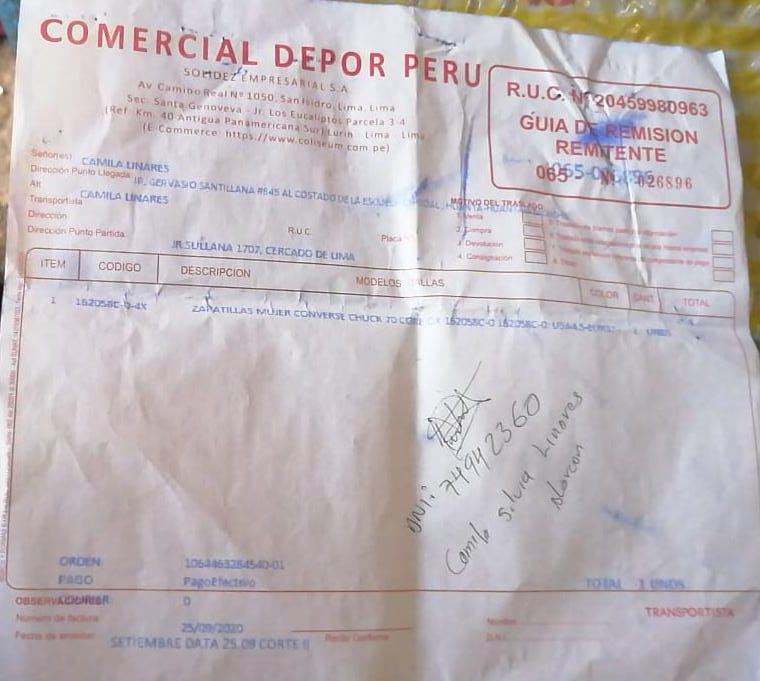 COMERCIAL DEPOR PERU
SOLIDEZ EMPRESARIAL S.A.
Av Camino Real Nº 1050, San Isidro, Lima, Lima
Sec. Santa Genoveva - Jr. Los Eucaliptos Parcela 3-4
(Ref. Km. 40 Antigua Panamericana Sur) Lurin Lima - Lima
(E-Commerce: https://www.coliseum.com.pe)
R.U.C. Nº 20459980963
GUIA DE REMISION
REMITENTE
065- Nº 026896
Señores: CAMILA LINARES
Dirección Punto Llegada: JR. GERVASIO SANTILLANA #845 AL COSTADO DE LA
Att
Transportista CAMILA LINARES
Dirección R.U.C. Placa
Dirección Punto Partida: JR.SULLANA 1707, CERCADO DE LIMA
MOTIVO DEL TRASLADO
1. Venta
2. Compra
3. Devolución
4. Consignación
ITEM CODIGO DESCRIPCION MODELOS TALLAS COLOR CANT. TOTAL
1 162058C-0-4X ZAPATILLAS MUJER CONVERSE CHUCK 70 CORE OX 162058C-0 162058C-0 1 UNIDS
DNI: 74942360
Camila Silvia Linares
Alarcon
ORDEN 1064463284540-01
PAGO PagoEfectivo
TOTAL 1 UNDS
0
Número de factura
Fecha de emisión 25/09/2020
SETIEMBRE DATA 25.09 CORTE II
Recibí Conforme
Nombre
D.N.I.
TRANSPORTISTA